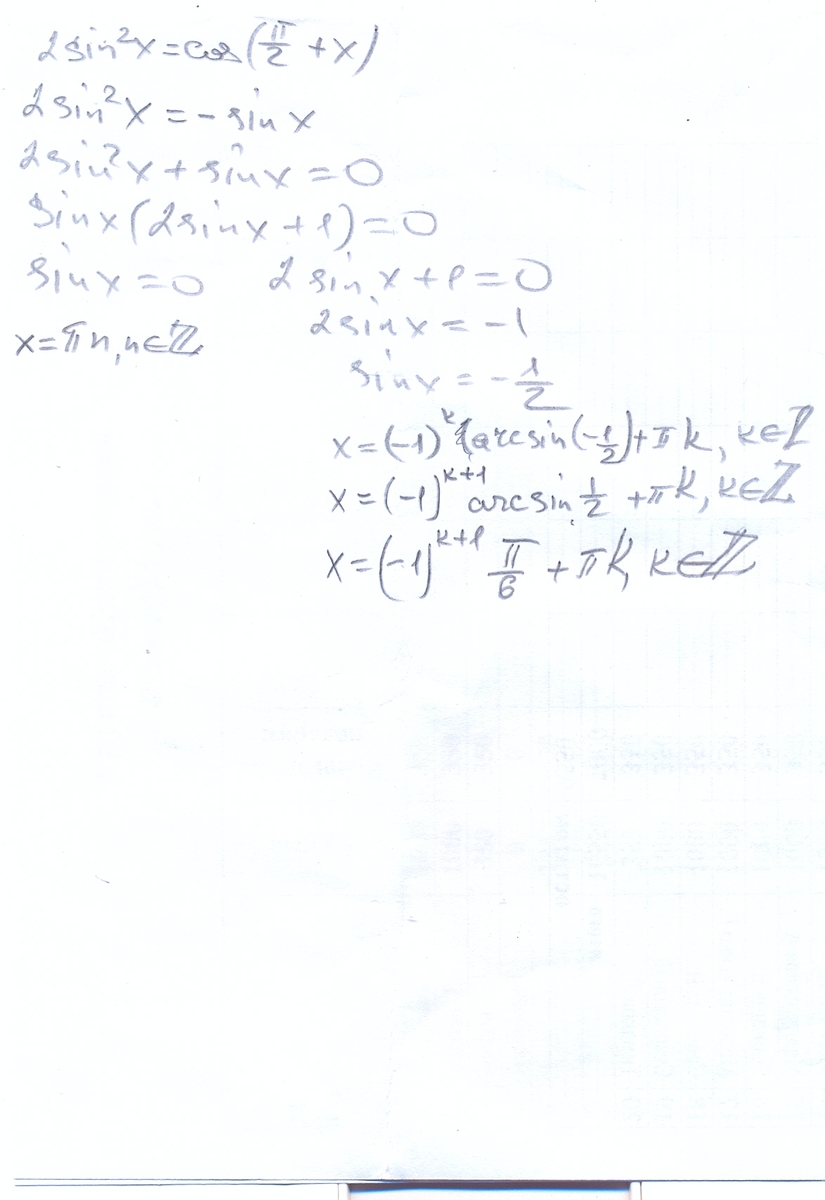 2sin²x=cos(π/2 +x)
2sin²x = - sin x
2sin²x + sinx = 0
sinx(2sinx + 1) = 0
sinx = 0    2 sin x + 1 = 0
x = πn, n∈Z    2sinx = -1
sinx = - 1/2
x = (-1)^k arcsin(-1/2) + πk, k∈Z
x = (-1)^(k+1) arcsin 1/2 + πk, k∈Z
x = (-1)^(k+1) π/6 + πk, k∈Z